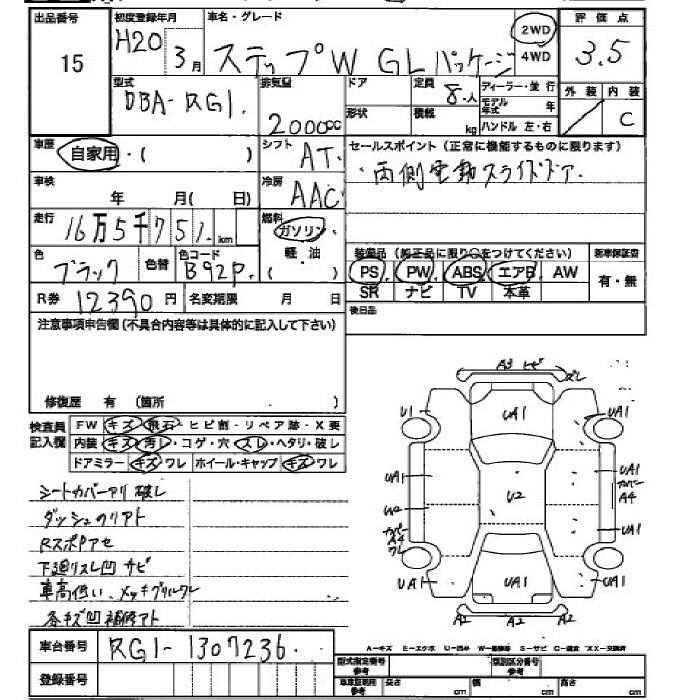 出品番号 初度登録年月 車名・グレード 評価点
15 H20 3月 ステップW GLパッケージ 2WD 4WD 3.5
型式 DBA-RG1. 排気量 2000cc ドア 定員 8.人 ディーラー・並行
形状 積載 kg モデル年式 年 外装 内装
ハンドル 左・右 C
車歴 自家用・( ) シフト AT. セールスポイント(正常に機能するものに限ります)
車検 年 月( 日) 冷房 AAC ・両側電動スライドドア.
走行 16万5千751.km 燃料 ガソリン・
軽・油
( )
色 ブラック 色替 色コード B92P. 装備品(純正品に限り○をつけてください) 新車保証書
PS PW ABS エアB AW 有・無
R券 12390円 名変期限 月 日 SR ナビ TV 本革
注意事項申告欄(不具合内容等は具体的に記入して下さい) 後日品
修復歴 有 (箇所 ・ )
検査員記入欄 FW キズ・飛石・ヒビ割・リペア跡・X要
内装 キズ・汚レ・コゲ・穴・スレ・ヘタリ・破レ
ドアミラー キズ・ワレ ホイール・キャップ キズ・ワレ
シートカバーアリ 破レ
ダッシュのリアト
RスポPアセ
下廻リスレ凹 サビ
車高低い、メッキグリルワレ
各キズ凹補修アト
A3 ヒビ ズレ
U1 UA1 UA1
UA1 UA1 カバー A4
U2 U2
カバー A4 ワレ UA1
UA1 UA1 UA1
A2 A2
車台番号 RG1-1307236.
登録番号
A=キズ E=エクボ U=凹み W=補修跡 S=サビ C=腐食 XX=交換済
型式指定番号 参考 類別区分番号 参考
車庫証明用 参考 長さ cm 幅 cm 高さ cm